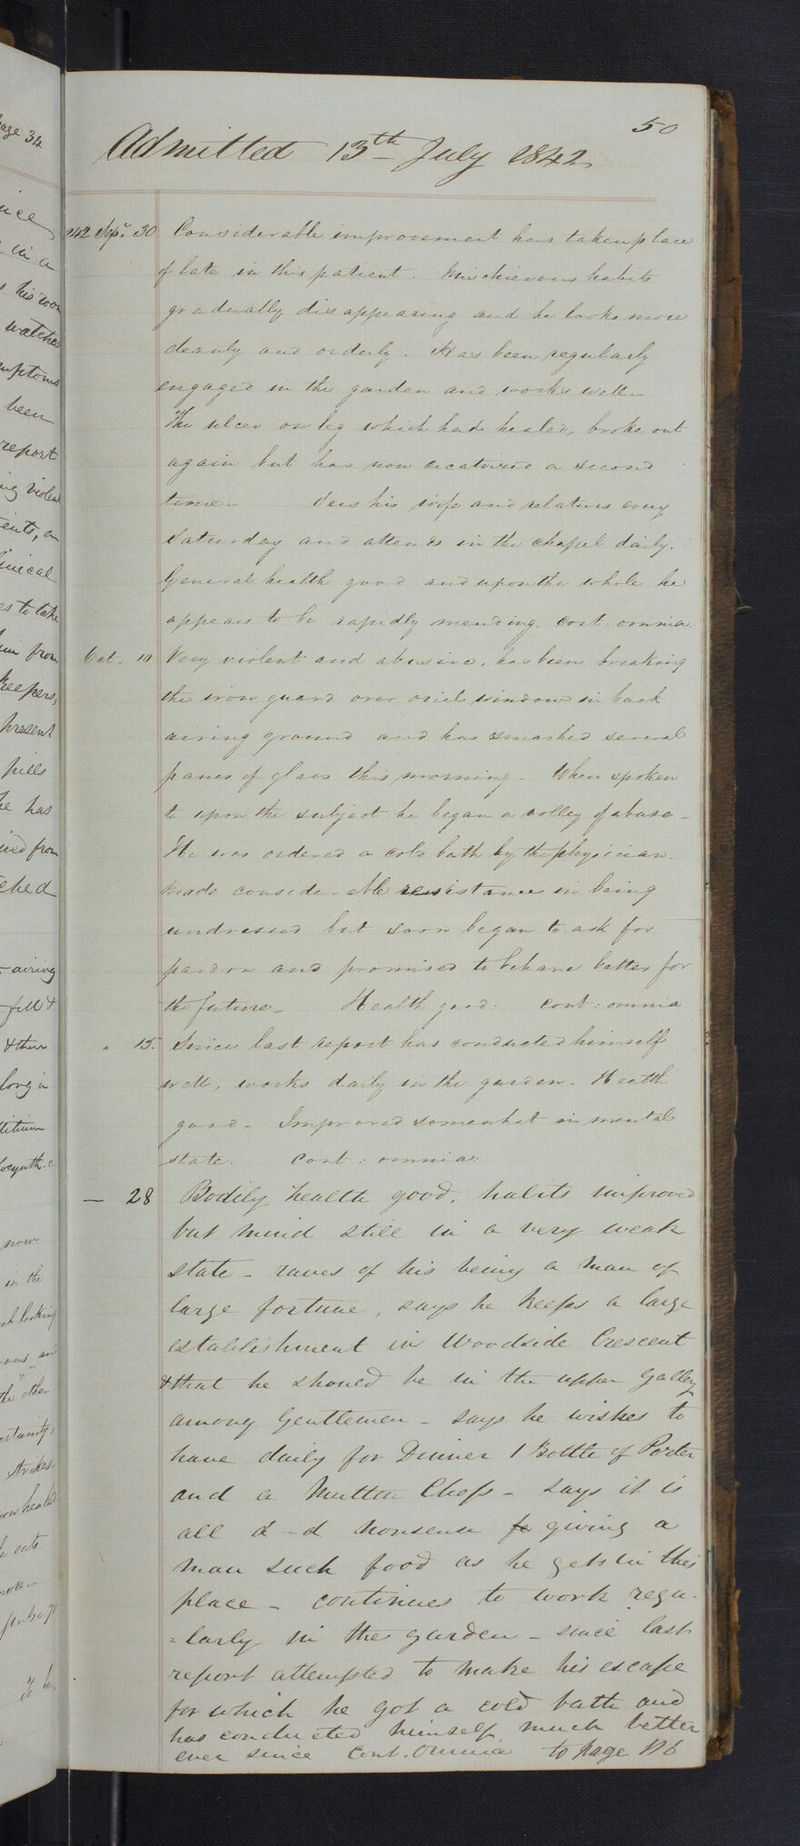 50
Admitted 13th July 1842
1842 Sepr. 30 Considerable improvement has taken place
of late in this patient. Mischievous habits
gradually disappearing and he looks more
cleanly and orderly. Has been regularly
engaged in the garden and works well
The ulcer on leg which had healed, broke out
again but has now cicatrized a second
time. Sees his wife and relatives every
Saturday and attends in the chapel daily.
General health good and upon the whole he
appears to be rapidly mending. Cont: omnia
Oct. 10 Very violent and abusive, has been breaking
the iron guard over oriel window in back
airing ground and has smashed several
panes of glass this morning. When spoken
to upon the subject he began a volley of abuse -
He was ordered a cold bath by the physician.
Made considerable resistance in being
undressed but soon began to ask for
pardon and promised to behave better for
the future - Health good. Cont: omnia
" 15. Since last report has conducted himself
well, works daily in the garden. Health
good. Improved somewhat in mental
state. Cont: omnia
— 28 Bodily health good, habits improved
but mind still in a very weak
state - raves of his being a man of
large fortune, says he keeps a large
establishment in Woodside Crescent
& that he should be in the upper Galley
among Gentlemen - says he wishes to
have daily for Dinner 1 Bottle of Porter
and a Mutton Chop - says it is
all d-d nonsense giving a
man such food as he gets in this
place - continues to work regu-
=larly in the garden - since last
report attempted to make his escape
for which he got a cold bath and
has conducted himself much better
ever since Cont. Omnia to page 116
page 34
his room
watches
symptoms
been
report
him from
keepers,
present
pills
he has
airing
now
in the